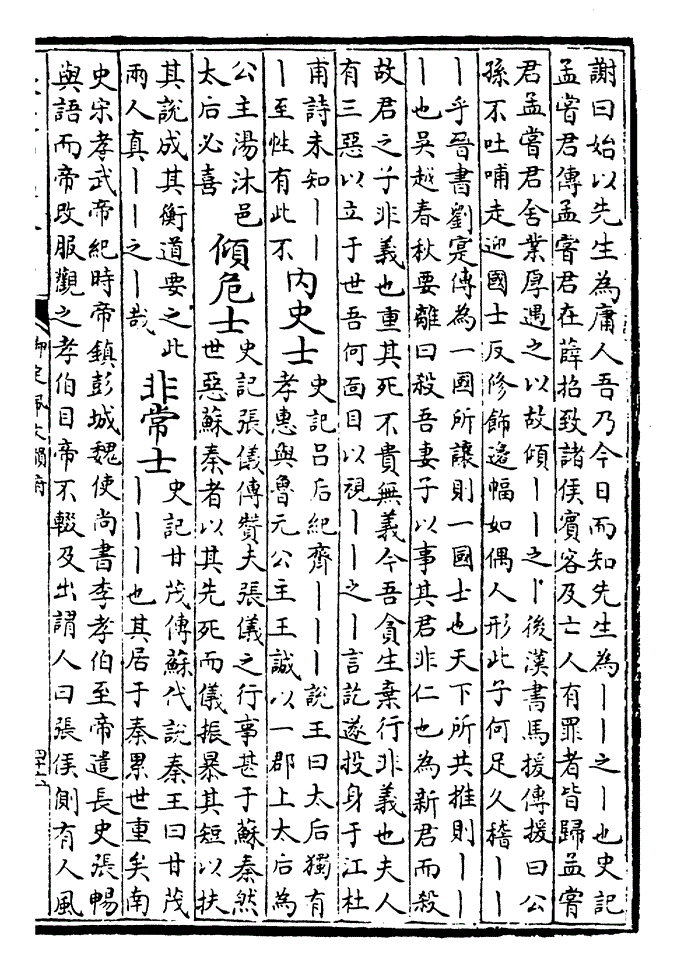 謝曰始以先生為庸人吾乃今日而知先生為丨丨之丨也史記
孟嘗君傳孟嘗君在薛招致諸侯賓客及亡人有罪者皆歸孟嘗
君孟嘗君舍業厚遇之以故傾丨丨之丨後漢書馬援傳援曰公
孫不吐哺走迎國士反修飾邊幅如偶人形此子何足久稽丨丨
丨乎晉書劉寔傳為一國所讓則一國士也天下所共推則丨丨
丨也吳越春秋要離曰殺吾妻子以事其君非仁也為新君而殺
故君之子非義也重其死不貴無義今吾貪生棄行非義也夫人
有三惡以立于世吾何面目以視丨丨之丨言訖遂投身于江杜
甫詩未知丨丨
丨至性有此不
內史士
史記呂后紀齊丨丨丨說王曰太后獨有
孝惠與魯元公主王誠以一郡上太后為
公主湯沐邑
太后必喜
傾危士
史記張儀傳贊夫張儀之行事甚于蘇秦然
世惡蘇秦者以其先死而儀振暴其短以扶
其說成其衡道要之此
兩人真丨丨之丨哉
非常士
史記甘茂傳蘇代說秦王曰甘茂
丨丨丨也其居于秦累世重矣南
史宋孝武帝紀時帝鎮彭城魏使尚書李孝伯至帝遣長史張暢
與語而帝改服觀之孝伯目帝不輟及出謂人曰張侯側有人風
御定佩文韻府